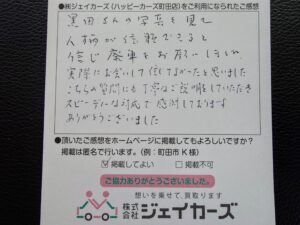 ●㈱ジェイカーズ(ハッピーカーズ町田店)をご利用になられたご感想
黒田さんの写真を見て
人柄が信頼できると
信じ廃車をお願いしましたが
実際にお会いして任してよかったと思いました
こちらの質問にも丁寧なご説明していただき
スピーディな対応で感謝しております
ありがとうございました
●頂いたご感想をホームページに掲載してもよろしいですか?
掲載は匿名で行います。(例:町田市 K 様)
☑掲載してよい □掲載不可
ご協力ありがとうございました。
想いを乗せて、買取ります
株式会社ジェイカーズ